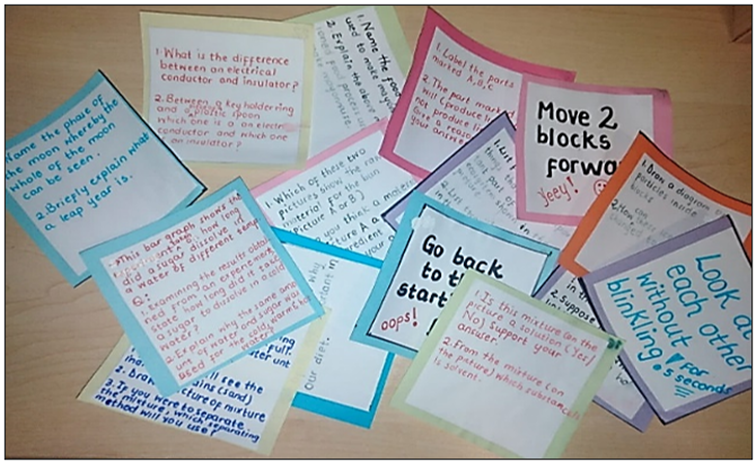 1. What is the difference
between an electrical
conductor and insulator?
2. Between a key holder ring
and a plastic spoon
which one is a an electric
conductor and which one
an insulator?
1. Name the food
used to make mayon
2. Explain the above m
ioned food process us
make mayonnaise.
1. Label the parts
marked A, B, C
2. The part marked
will (produce li
not produce li
Give a reason
your answer
Move 2
blocks
forwa
yeey!
Name the phase of
the moon whereby the
whole of the moon
can be seen.
2. Briefly explain what
a leap year is.
1. Which of these two
pictures show the raw
material for the bun
(picture A or B)?
you think a molers
picture A a
redient
your
1. List
things th
tant part of
2. List
1. Draw a diagram of
particles inside
blocks
2. How
can these
changed to
This bar graph shows the
how long
did a sugar dissolve in
a water of different temp
Q:
1. Examining the results obtai
ned from an experiement
state how long did it take
a sugar to dissolve in a cold
water?
2. Explain why the same amo
unt of water and sugar was
used for the cold, warm & hot
water?
Why
in
our diet.
Go back
to th
start
oops!
in th
2. Suppose
Look at
each other
without
blinkling! for
5 seconds
1. Is this mixture (in the
picture a solution (Yes/
No) support your
answer.
2. From the mixture (on
the picture) which substance
is solvent.
see the
2. Draw
ains (sand)
cture of mixture
3. If you were to separate
the mixture, which separating
method will you use?